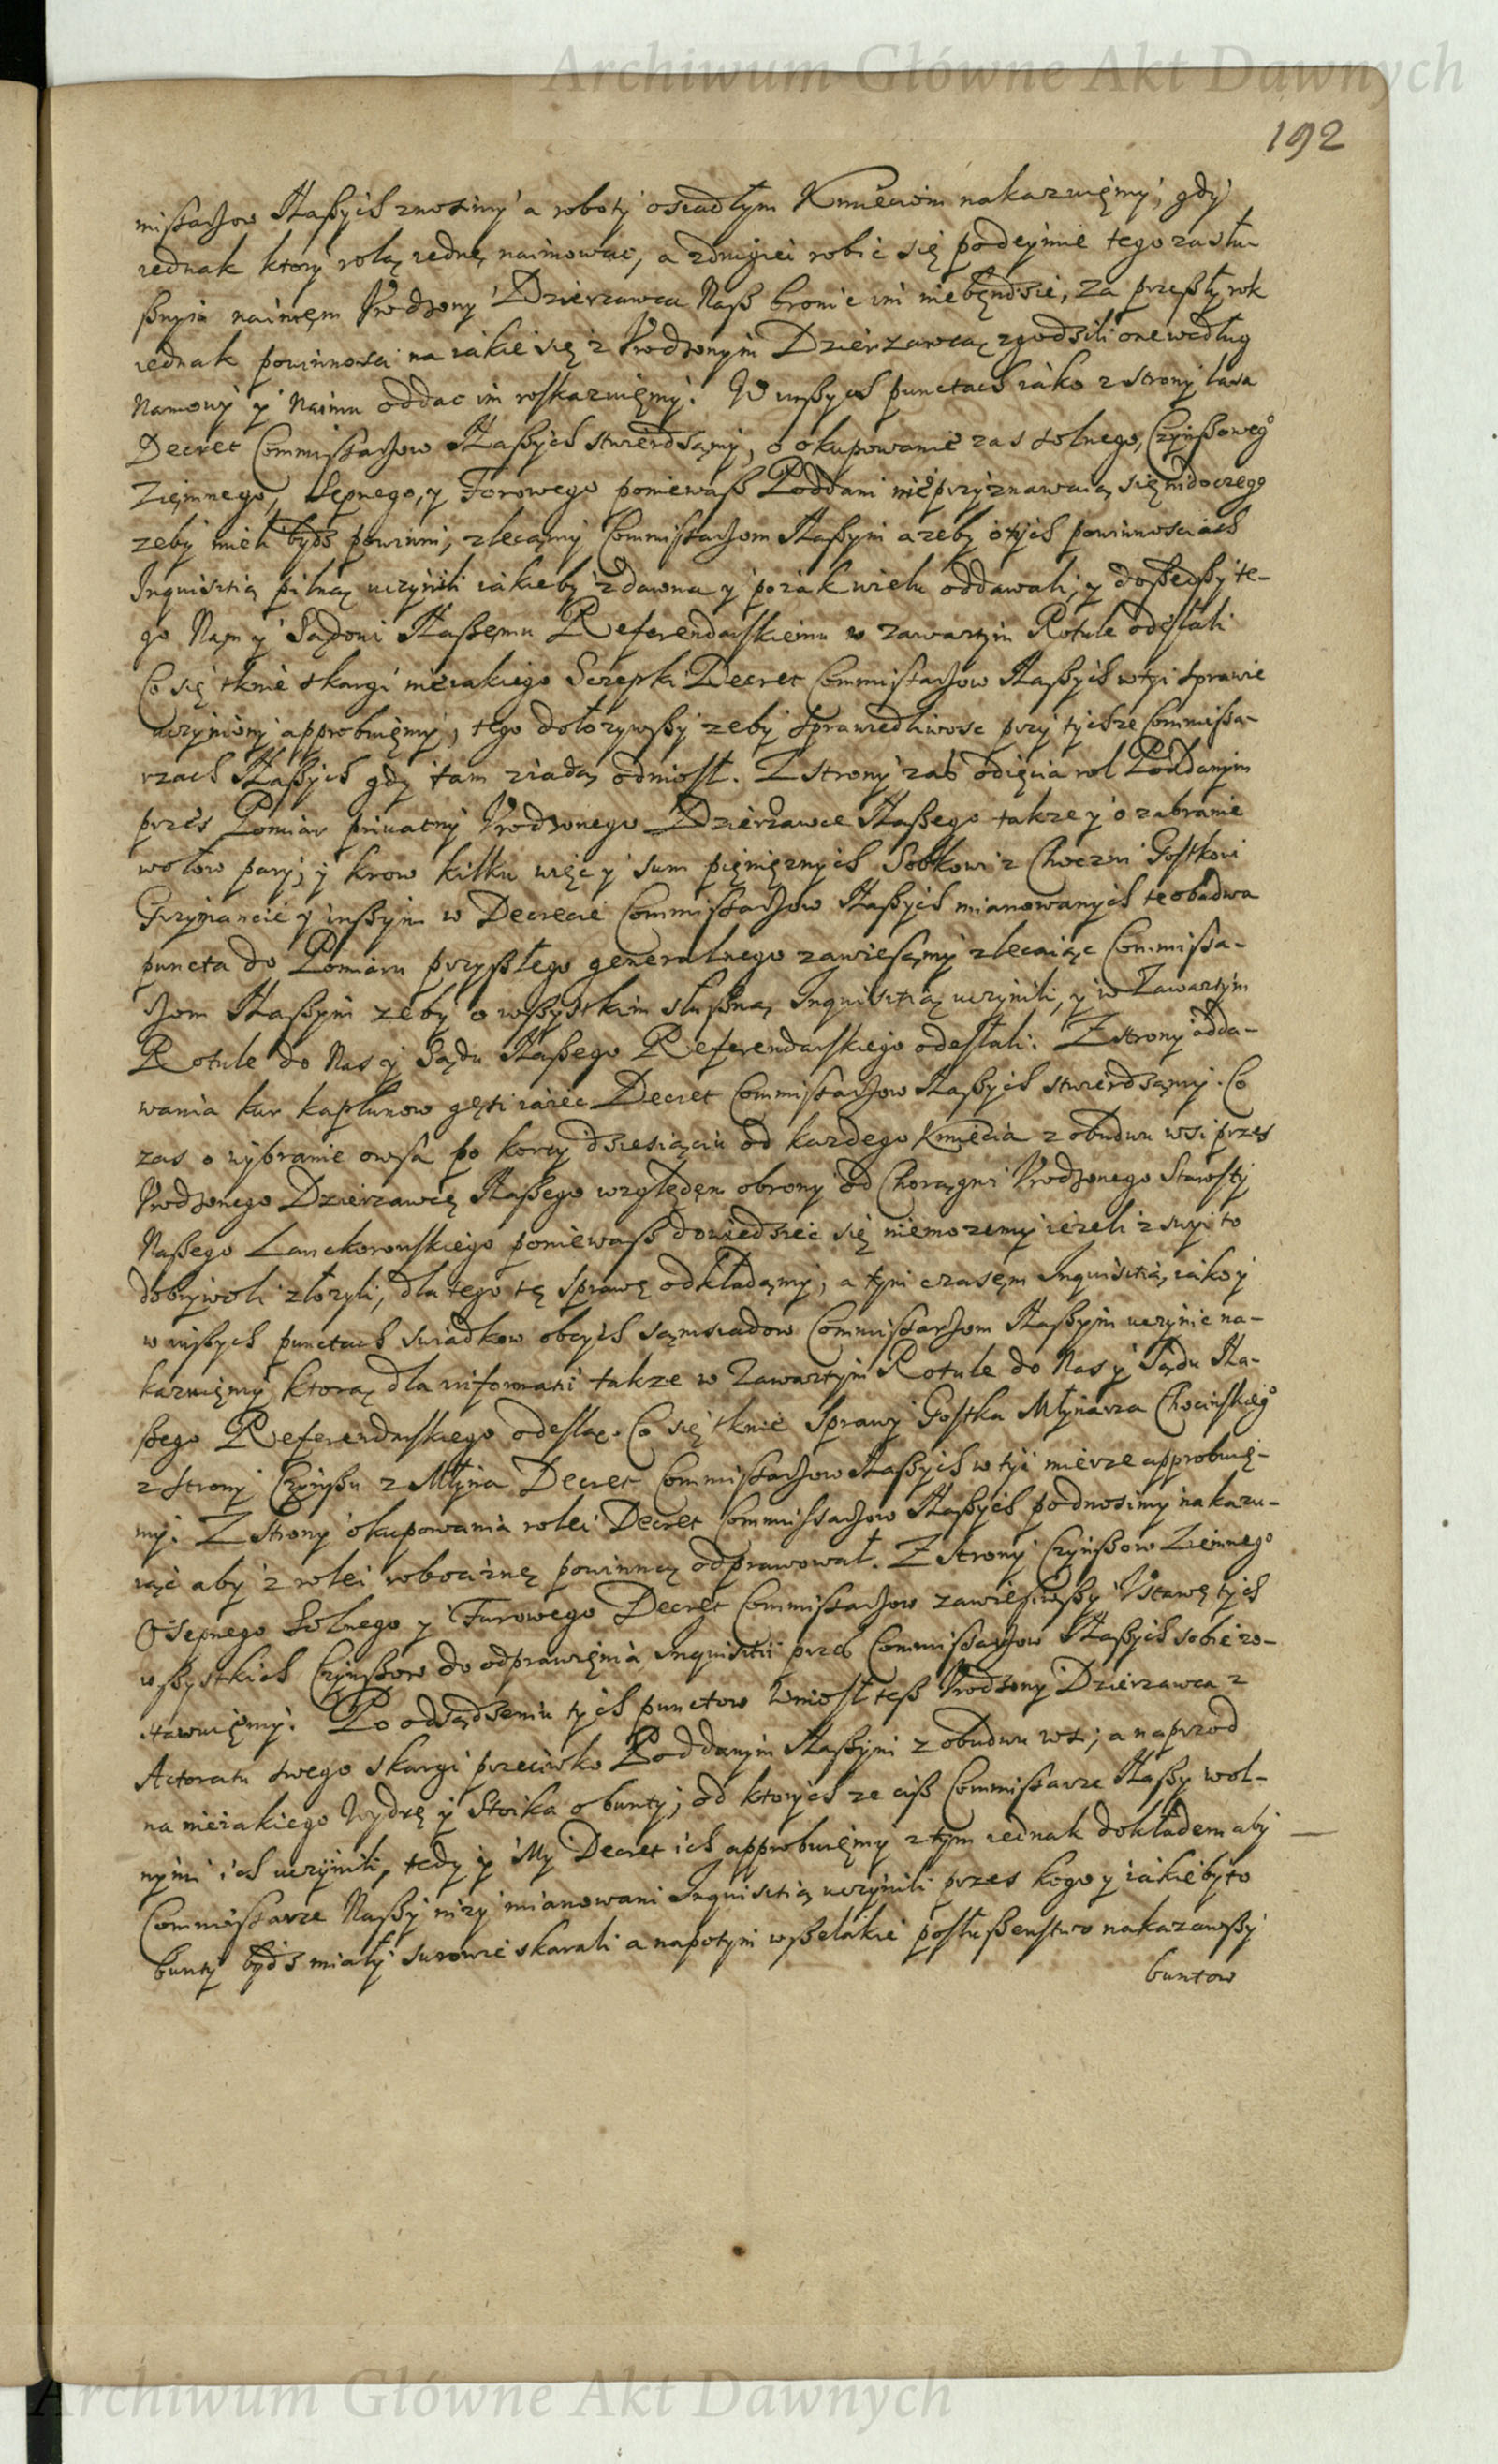 Archiwum Główne Akt Dawnych
192
missarzow Naßych znosimy a roboty osiadłym Kmieciom nakazuięmy, gdy
iednak ktory rolą iednę naimować, a zdrugiei robić się podeymie tego za słu
ßnym naimem Vrodzony Dzierzawca Naß bronić im niebęndzie, Za przeßły rok
iednak powinnosci na iakie się z Vrodzonym Dzierzawcą zgodzili one według
Namowy y Naimu oddac im roskazuięmy. W inßych punctach iako z strony lasa
Decret Commissarzow Naßych stwierdzamy, o okupowanie zas solnego, Czynßowego
Ziemnego, Sepnego, y Forowego poniewaß Poddani nieprzyznawaią się nidoczego
zeby mieli bydz powinni, zlecamy Commissarzom Naßym azeby o tych powinnosciach
Inquisitią pilną uczynili iakieby zdawna y po iak wielu oddawali, y doßedßy te-
go Nam y Sądowi Naßemu Referendarskiemu w zawartym Rotule odesłali
Co się tknie skargi nieiakiego Szczepki Decret Commissarzow Naßych w tyi sprawie
uczyniony approbuięmy, tego dołozywßy zeby sprawiedliwosc przy tychze Commissa-
rzach Naßych gdy tam ziadą odniosł. Z strony zas odięcia rol Poddanym
przes Pomiar priuatny Vrodzonego Dzierzawce Naßego takze y o zabranie
wołow pary, y krow kilku więc y sum pięnięznych Sobkowi z Choczni Gostkowi
Grzymancie y inßym w Decrecie Commissarzow Naßych mianowanych te obudwa
puncta do Pomiaru przyßłego generalnego zawiesamy zlecaiąc Commissa-
rzom Naßym zeby o wßystkim słußną Inquisitią uczynili, y w Zawartym
Rotule do Nas y Sądu Naßego Referendarskiego odesłali. Z strony odda-
wania kur kapłunow gęsi iaiec Decret Commissarzow Naßych stwierdzamy. Co
zas o wybranie owsa po korcy dziesiąciu od kazdego Kmiecia z obudwu wsi przes
Vrodzonego Dzierzawcę Naßego względem obrony od Chorągwi Vrodzonego Starosty
Naßego Lanckoronskiego poniewaß dowiedziec się niemozemy iezeli z swyi to
dobryiwoli złozyli, dla tego tę sprawę odkładamy, a tym czasem Inquisitią, iako y
w inßych punctach swiadkow obcych sąmsiadow Commissarzom Naßym uczynic na-
kazuięmy ktorą dla informatii takze w Zawartym Rotule do Nas y Sądu Na-
ßego Referendarskiego odeslą. Co się tknie Sprawy Gostka Młynarza Chocinskiego
z strony Czynßu z Młyna Decret Commissarzow Naßych w tyi mierze approbuię-
my. Z strony okupowania rolei Decret Commissarzow Naßych podnosimy nakazu-
iąc aby z rolei robociznę powinną odprawował. Z strony Czynßow Ziemnego
Osepnego Solnego y Furowego Decret Commissarzow zawiesiwßy Vstawę tych
wßystkich Czynßow do odprawięnia Inquisitii przes Commissarzow Naßych sobie zo-
stawuięmy. Po odsądzeniu tych punctow wniosł teß Vrodzony Dzierzawca z
Actoratu swego skargi przeciwko Poddanym Naßym z obudwu wsi, a naprzod
na nieiakiego Wydrę y Stoika o bunty, od ktorych ze ciß Commissarze Naßy wol-
nymi ich uczynili, tedy y My Decret ich approbuięmy z tym iednak dokładem aby
Commissarze Naßy nizy mianowani Inquisitią uczynili przes kogo y iakieby to
bunty bydz miały surowie skarali a napotym wßelakie posłußenstwo nakazawßy
buntow
Archiwum Główne Akt Dawnych